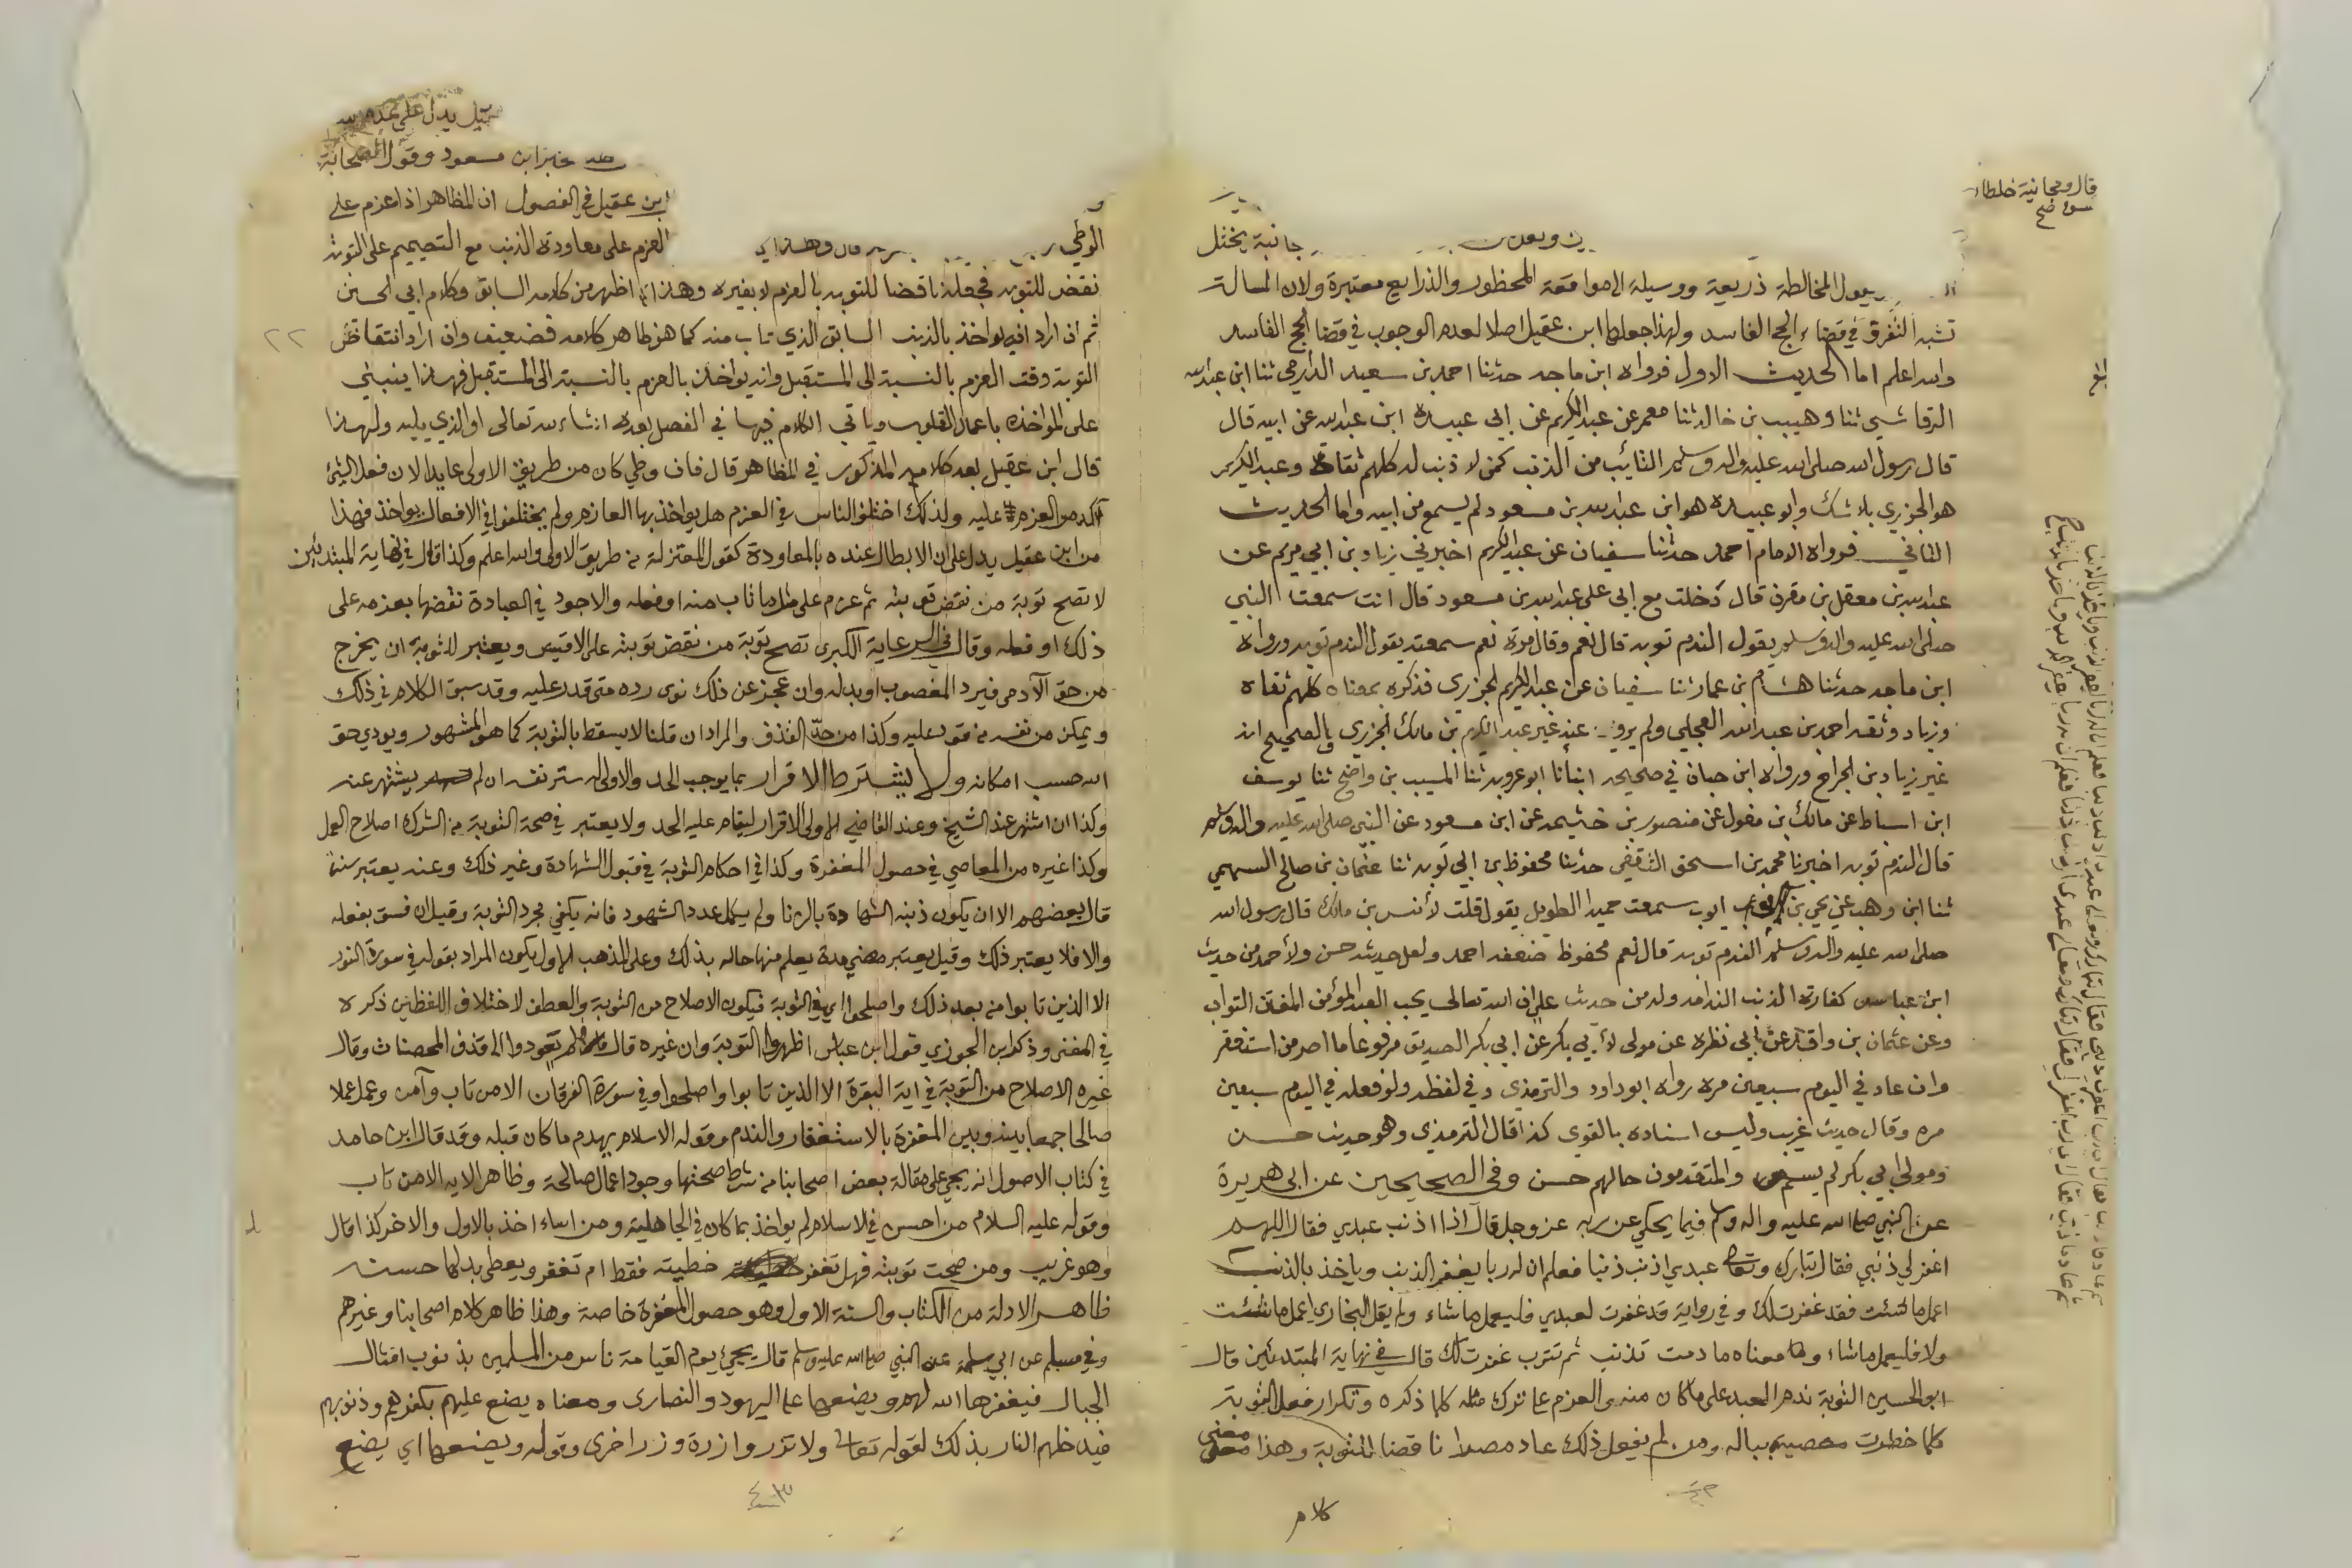 قال ومجانبة خلطاء
سوء صح
جانبة يختل
المخالطة ذريعة ووسيلة الا موافقة المحظور والذرايع معتبرة ولان المسالة
تشبه التفرق في قضاء الحج الفاسد ولهذا جعلها ابن عقيل اصلا لعدم الوجوب في قضا الحج الفاسد
والله اعلم اما الحديث الاول فرواه ابن ماجه حدثنا احمد بن سعيد الدارمي ثنا ابن عبد الله
الرقاشي ثنا وهيب بن خالد ثنا معمر عن عبد الكريم عن ابي عبيدة ابن عبد الله عن ابيه قال
قال رسول الله صلى الله عليه واله وسلم التائب من الذنب كمن لا ذنب له كلهم ثقات وعبد الكريم
هو الجزري بلا شك وابو عبيدة هو ابن عبد الله بن مسعود لم يسمع من ابيه واما الحديث
الثاني فرواه الامام احمد حدثنا سفيان عن عبد الكريم اخبرني زياد بن ابي مريم عن
عبد الله بن معقل بن مقرن قال دخلت مع ابي على عبد الله بن مسعود قال انت سمعت النبي
صلى الله عليه واله وسلم يقول الندم توبه قال نعم وقال مرة نعم سمعته يقول الندم توبه ورواه
ابن ماجه حدثنا هشام بن عمار ثنا سفيان عن عبد الكريم الجزري فذكره بمعناه كلهم ثقاه
وزياد وثقه احمد بن عبد الله العجلي ولم يرو عنه غير عبد الكريم بن مالك الجزري والصحيح انه
غير زياد بن الجراح ورواه ابن حبان في صحيحه انبأنا ابو عروبه ثنا المسيب بن واضح ثنا يوسف
ابن اسباط عن مالك بن مغول عن منصور بن خثيمه عن ابن مسعود عن النبي صلى الله عليه واله وسلم
قال الندم توبه اخبرنا محمد بن اسحق الثقفي حدثنا محفوظ بن ابي توبه ثنا عثمان بن صالح السهمي
ثنا ابن وهب عن يحيى بن ايوب سمعت حميد الطويل يقول قلت لأنس بن مالك قال رسول الله
صلى الله عليه واله وسلم الندم توبه قال نعم محفوظ ضعفه احمد ولعل حديثه حسن ولأحمد من حديث
ابن عباس كفارة الذنب الندامه وله من حديث علي ان الله تعالى يحب العبد المؤمن المفتن التواب
وعن عثمان بن واقد عن ابي نظره عن مولى لأبي بكر عن ابي بكر الصديق مرفوعا ما اصر من استغفر
وان عاد في اليوم سبعين مره رواه ابو داود والترمذي وفي لفظه ولو فعله في اليوم سبعين
مره وقال حديث غريب وليس اسناده بالقوى كذا قال الترمذي وهو حديث حسن
ومولى ابي بكر لم يسم والمتقدمون حالهم حسن وفي الصحيحين عن ابي هريرة
عن النبي صلى الله عليه واله وسلم فيما يحكي عن ربه عز وجل قال اذا اذنب عبدي فقال اللهم
اغفر لي ذنبي فقال تبارك وتعالى عبدي اذنب ذنبا فعلم ان له ربا يغفر الذنب وياخذ بالذنب
اعمل ما شئت فقد غفرت لك وفي رواية قد غفرت لعبدي فليعمل ما شاء ولم يقل البخاري اعمل ما شئت
ولا فليعمل ما شاء ومعناه ما دمت تذنب ثم تتوب غفرت لك قال في نهاية المبتدئين قال
ابو الحسين التوبة ندم العبد على ما كان منه والعزم على ترك مثله كلما ذكره وتكرار فعل التوبة
كلما خطرت معصيته بباله ومن لم يفعل ذلك عاد مصرا ناقضا للتوبة وهذا معنى
كلام
قيل يدل على
خبر ابن مسعود وقول الصحابة
ابن عقيل في الفصول ان المظاهر اذا عزم على
الوطي العزم على معاودة الذنب مع التصميم على التوبة
نقض للتوبه فجعله ناقضا للتوبه بالعزم لا بغيره وهذا اظهر من كلامه السابق وكلام ابي الحسين
ثم ان اراد انه يواخذ بالذنب السابق الذي تاب منه كما هو ظاهر كلامه فضعيف وان اراد انتقاض
التوبة وقت العزم بالنسبة الى المستقبل وانه يواخذ بالعزم بالنسبة الى المستقبل فهذا ينبني
على المواخذه باعمال القلوب وياتي الكلام فيها في الفصل بعده ان شاء الله تعالى او الذي يليه ولهذا
قال ابن عقيل بعد كلامه المذكور في المظاهر قال فان وطي كان من طريق الاولى عايدا لان فعل الشئ
آكد من العزم عليه ولذلك اختلف الناس في العزم هل يواخذ بها العازم ولم يختلفوا في الافعال يواخذ فهذا
من ابن عقيل يدل على ان الابطال عنده بالمعاودة كقول المعتزلة من طريق الاولى والله اعلم وكذا قال في نهاية المبتدئين
لا تصح توبة من نقض توبته ثم عزم على مثل ما تاب منه او فعله والاجود في العبادة نقضها بعزمه على
ذلك او فعله وقال في الرعاية الكبرى تصح توبة من نقض توبته على الاقيس ويعتبر للتوبة ان يخرج
من حق الآدمي فيرد المغصوب او بدله وان عجز عن ذلك نوى رده متى قدر عليه وقد سبق الكلام في ذلك
ويمكن من نفسه من قود عليه وكذا من حد القذف والمراد ان قلنا لا يسقط بالتوبة كما هو المشهور ويودي حق
الله حسب امكانه ولا يشترط الاقرار بما يوجب الحد والاولى له ستر نفسه ان لم يشتهر عنه
وكذا ان اشتهر عند الشيخ وعند القاضي الاولى الاقرار ليقام عليه الحد ولا يعتبر في صحة التوبة من الشرك اصلاح العمل
وكذا غيره من المعاصي في حصول المغفرة وكذا في احكام التوبة في قبول الشهادة وغير ذلك وعنه يعتبر سنة
قال بعضهم الا ان يكون ذنبه الشهادة بالزنا ولم يكمل عدد الشهود فانه يكفي مجرد التوبة وقيل ان فسق بفعله
والا فلا يعتبر ذلك وقيل يعتبر مضي مدة يعلم منها حاله بذلك وعلى المذهب الاول يكون المراد بقوله في سورة النور
الا الذين تابوا من بعد ذلك واصلحوا اي في التوبة فيكون الاصلاح من التوبة والعطف لاختلاف اللفظين ذكره
في المغنى وذكر ابن الجوزي قول ابن عباس اظهروا التوبة وان غيره قال لم يعودوا الى قذف المحصنات وقال
غيره الاصلاح من التوبة في اية البقرة الا الذين تابوا واصلحوا وفي سورة الفرقان الا من تاب وآمن وعمل عملا
صالحا جمعا بينه وبين المغفرة بالاستغفار والندم وقوله الاسلام يهدم ما كان قبله وقد قال ابن حامد
في كتاب الاصول انه يجي على مقالة بعض اصحابنا من شرط صحتها وجود اعمال صالحة وظاهر الايه الا من تاب
وقوله عليه السلام من احسن في الاسلام لم يواخذ بما كان في الجاهلية ومن اساء اخذ بالاول والاخر كذا قال
وهو غريب ومن صحت توبته فهل تغفر خطيته فقط ام تغفر ويعطى بدلها حسنة
ظاهر الادلة من الكتاب والسنة الاول وهو حصول المغفرة خاصة وهذا ظاهر كلام اصحابنا وغيرهم
وفي مسلم عن ابي سلمة عن النبي صلى الله عليه وسلم قال يجيئ يوم القيامة ناس من المسلمين بذنوب امثال
الجبال فيغفرها الله لهم ويضعها على اليهود والنصارى ومعناه يضع عليهم بكفرهم وذنوبهم
فيدخلهم النار بذلك لقوله تعالى ولا تزر وازرة وزر اخرى وقوله ويضعها اي يضع
٤٣